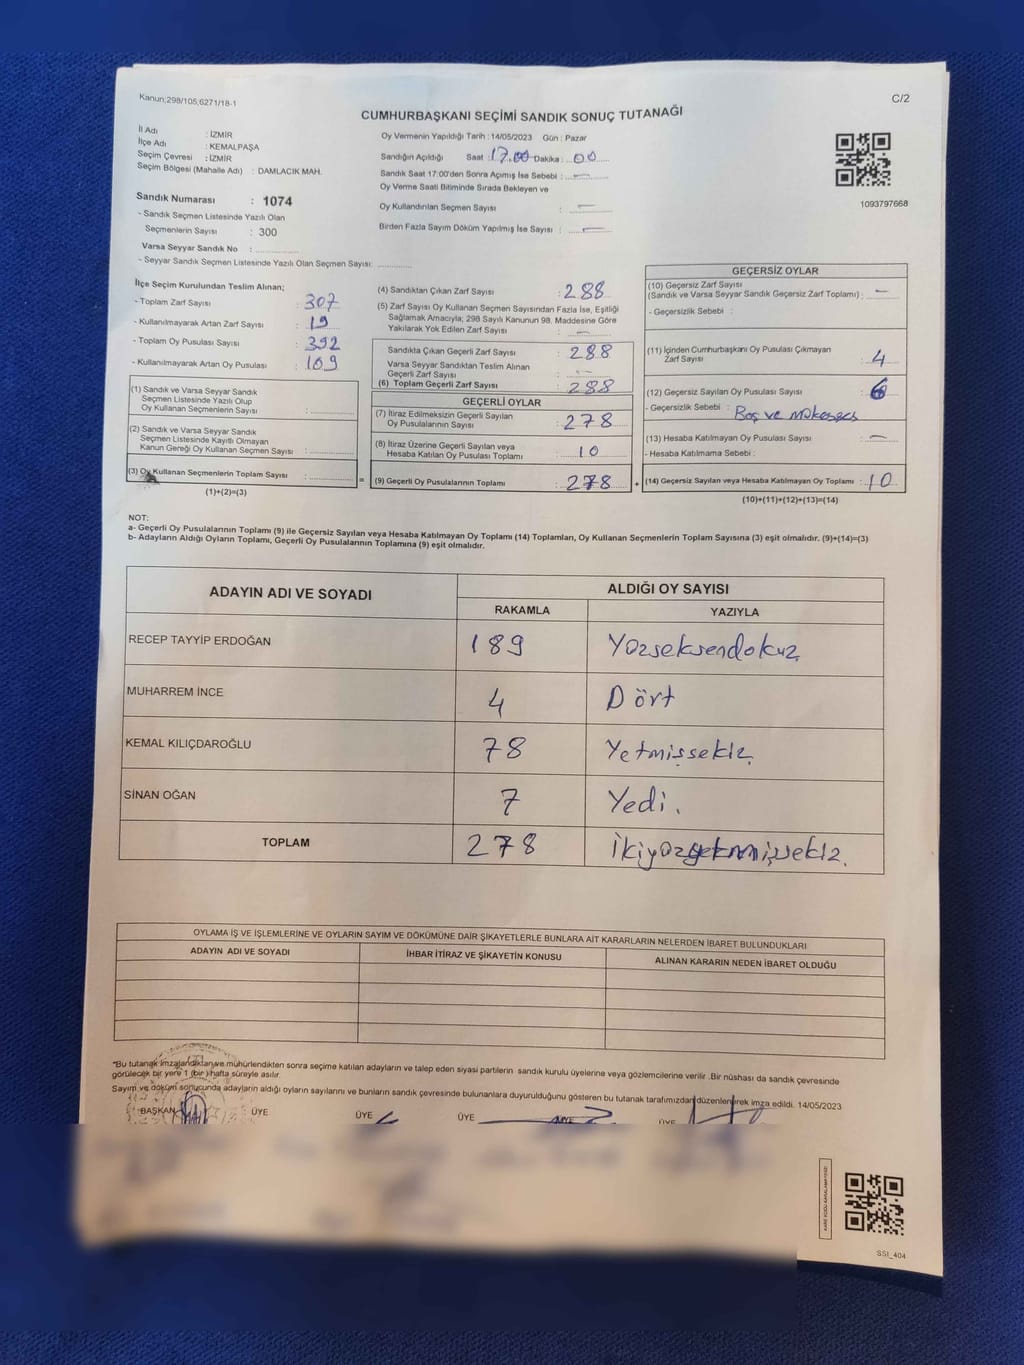 Kanun;298/105,6271/18-1
C/2
CUMHURBAŞKANI SEÇİMİ SANDIK SONUÇ TUTANAĞI
İl Adı : İZMİR
İlçe Adı : KEMALPAŞA
Seçim Çevresi : İZMİR
Seçim Bölgesi (Mahalle Adı) : DAMLACIK MAH.
Sandık Numarası : 1074
- Sandık Seçmen Listesinde Yazılı Olan
Seçmenlerin Sayısı : 300
Varsa Seyyar Sandık No :
- Seyyar Sandık Seçmen Listesinde Yazılı Olan Seçmen Sayısı:
Oy Vermenin Yapıldığı Tarih : 14/05/2023 Gün : Pazar
Sandığın Açıldığı Saat : 17.00 Dakika : 00
Sandık Saat 17:00'den Sonra Açımış İse Sebebi : —
Oy Verme Saati Bitiminde Sırada Bekleyen ve
Oy Kullandırılan Seçmen Sayısı : —
Birden Fazla Sayım Döküm Yapılmış İse Sayısı : —
1093797668
İlçe Seçim Kurulundan Teslim Alınan;
- Toplam Zarf Sayısı : 307
- Kullanılmayarak Artan Zarf Sayısı : 19
- Toplam Oy Pusulası Sayısı : 392
- Kullanılmayarak Artan Oy Pusulası : 109
(1) Sandık ve Varsa Seyyar Sandık
Seçmen Listesinde Yazılı Olup
Oy Kullanan Seçmenlerin Sayısı :
(2) Sandık ve Varsa Seyyar Sandık
Seçmen Listesinde Kayıtlı Olmayan
Kanun Gereği Oy Kullanan Seçmen Sayısı :
(3) Oy Kullanan Seçmenlerin Toplam Sayısı : =
(1)+(2)=(3)
(4) Sandıktan Çıkan Zarf Sayısı : 288
(5) Zarf Sayısı Oy Kullanan Seçmen Sayısından Fazla İse, Eşitliği
Sağlamak Amacıyla; 298 Sayılı Kanunun 98. Maddesine Göre
Yakılarak Yok Edilen Zarf Sayısı : —
Sandıkta Çıkan Geçerli Zarf Sayısı : 288
Varsa Seyyar Sandıktan Teslim Alınan
Geçerli Zarf Sayısı : -
(6) Toplam Geçerli Zarf Sayısı : 288
GEÇERLİ OYLAR
(7) İtiraz Edilmeksizin Geçerli Sayılan
Oy Pusulalarının Sayısı : 278
(8) İtiraz Üzerine Geçerli Sayılan veya
Hesaba Katılan Oy Pusulası Toplamı : 10
(9) Geçerli Oy Pusulalarının Toplamı : 278 +
GEÇERSİZ OYLAR
(10) Geçersiz Zarf Sayısı
(Sandık ve Varsa Seyyar Sandık Geçersiz Zarf Toplamı) : —
- Geçersizlik Sebebi :
(11) İçinden Cumhurbaşkanı Oy Pusulası Çıkmayan
Zarf Sayısı : 4
(12) Geçersiz Sayılan Oy Pusulası Sayısı : 6
- Geçersizlik Sebebi : Boş ve
(13) Hesaba Katılmayan Oy Pusulası Sayısı : —
- Hesaba Katılmama Sebebi :
(14) Geçersiz Sayılan veya Hesaba Katılmayan Oy Toplamı : 10
(10)+(11)+(12)+(13)=(14)
NOT:
a- Geçerli Oy Pusulalarının Toplamı (9) ile Geçersiz Sayılan veya Hesaba Katılmayan Oy Toplamı (14) Toplamları, Oy Kullanan Seçmenlerin Toplam Sayısına (3) eşit olmalıdır. (9)+(14)=(3)
b- Adayların Aldığı Oyların Toplamı, Geçerli Oy Pusulalarının Toplamına (9) eşit olmalıdır.
ADAYIN ADI VE SOYADI
ALDIĞI OY SAYISI
RAKAMLA YAZIYLA
RECEP TAYYİP ERDOĞAN 189 Yüzseksendokuz
MUHARREM İNCE 4 Dört
KEMAL KILIÇDAROĞLU 78 Yetmişsekiz.
SİNAN OĞAN 7 Yedi.
TOPLAM 278 İkiyüzyetmişsekiz.
OYLAMA İŞ VE İŞLEMLERİNE VE OYLARIN SAYIM VE DÖKÜMÜNE DAİR ŞİKAYETLERLE BUNLARA AİT KARARLARIN NELERDEN İBARET BULUNDUKLARI
ADAYIN ADI VE SOYADI İHBAR İTİRAZ VE ŞİKAYETİN KONUSU ALINAN KARARIN NEDEN İBARET OLDUĞU
*Bu tutanak imzalandıktan ve mühürlendikten sonra seçime katılan adayların ve talep eden siyasi partilerin sandık kurulu üyelerine veya gözlemcilerine verilir .Bir nüshası da sandık çevresinde
görülecek bir yere 1 (bir) hafta süreyle asılır.
Sayım ve döküm sonucunda adayların aldığı oyların sayılarını ve bunların sandık çevresinde bulunanlara duyurulduğunu gösteren bu tutanak tarafımızdan düzenlenerek imza edildi. 14/05/2023
BAŞKAN ÜYE ÜYE ÜYE ÜYE ÜYE
SSI_404